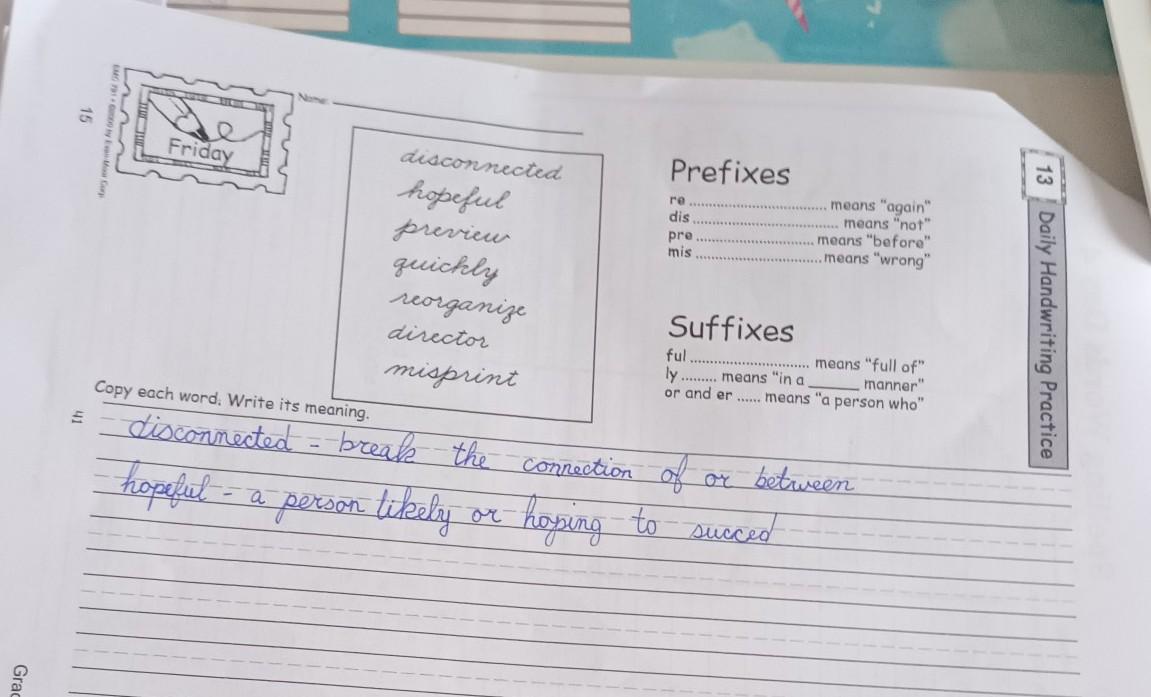 Name:
Friday
15
disconnected
hopeful
preview
quickly
reorganize
director
misprint
Prefixes
re .............................. means "again"
dis .............................. means "not"
pre .............................. means "before"
mis .............................. means "wrong"
Suffixes
ful .............................. means "full of"
ly ......... means "in a ______ manner"
or and er ...... means "a person who"
13 Daily Handwriting Practice
Copy each word. Write its meaning.
disconnected - break the connection of or between
hopeful - a person likely or hoping to succed